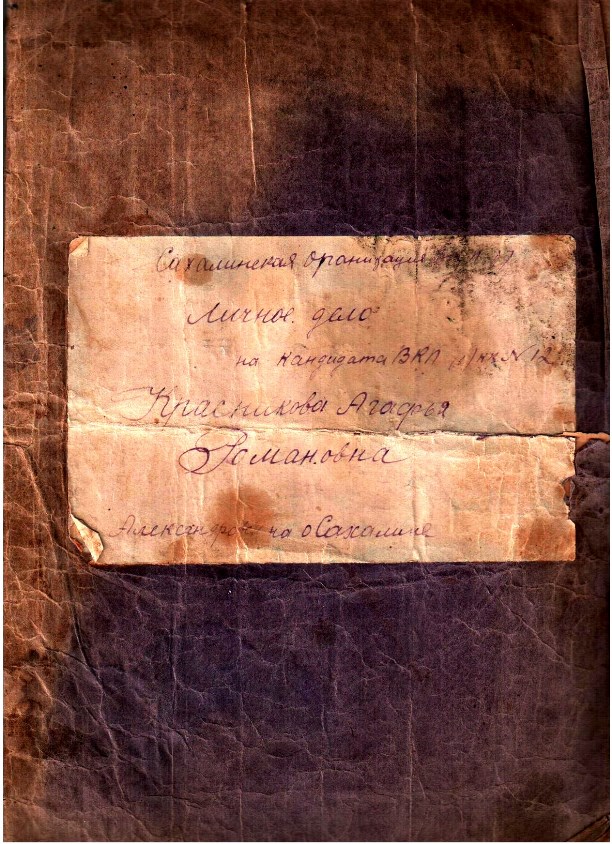 Сахалинская организация
Личное дело
на кандидата ВКП
Красникова Агафья
Романовна
Александровск на о Сахалине